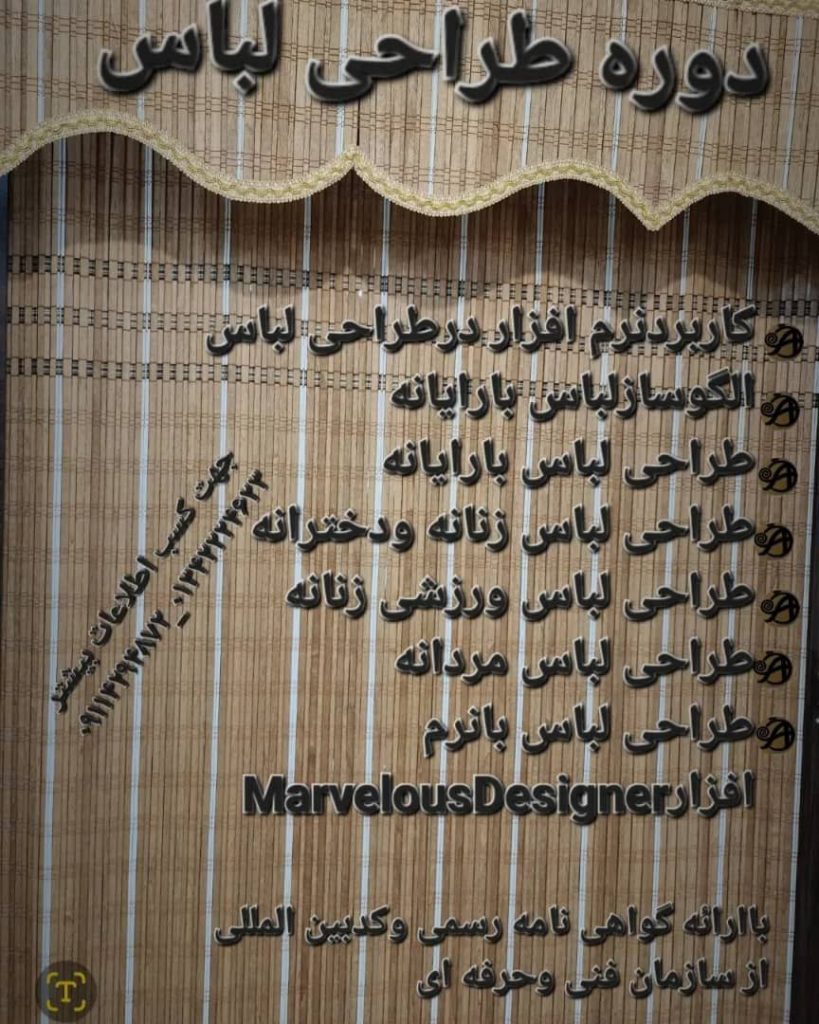 دوره طراحی لباس
کاربردنرم افزار درطراحی لباس
الگوسازلباس بارایانه
طراحی لباس بارایانه
طراحی لباس زنانه ودخترانه
طراحی لباس ورزشی زنانه
طراحی لباس مردانه
طراحی لباس بانرم
افزارMarvelousDesigner
جهت کسب اطلاعات بیشتر
۰۹۱۱۴۲۹۴۸۷۲_۰۱۳۴۲۲۲۴۶۲۳
باارائه گواهی نامه رسمی وکدبین المللی
از سازمان فنی وحرفه ای